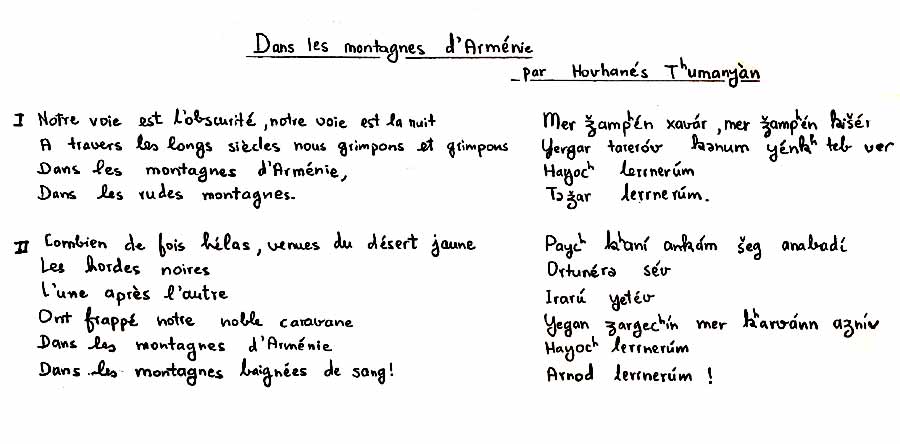 Dans les montagnes d'Arménie
par Hovhanés Tʰumanyàn
I Notre voie est l'obscurité, notre voie est la nuit
A travers les longs siècles nous grimpons et grimpons
Dans les montagnes d'Arménie,
Dans les rudes montagnes.
II Combien de fois hélas, venues du désert jaune
Les hordes noires
L'une après l'autre
Ont frappé notre noble caravane
Dans les montagnes d'Arménie
Dans les montagnes baignées de sang!
Mer ǯampʰén xavár, mer ǯampʰén kišér
Yergar tareróv kənum yénkʰ teb ver
Hayocʰ lerrnerúm
Təžar lerrnerúm.
Paycʰ kʰaní ankám šeg anabadí
Ortunérə sév
Irarú yetév
Yegan zargecʰín mer kʰarvánn azniv
Hayocʰ lerrnerúm
Arnod lerrnerúm !